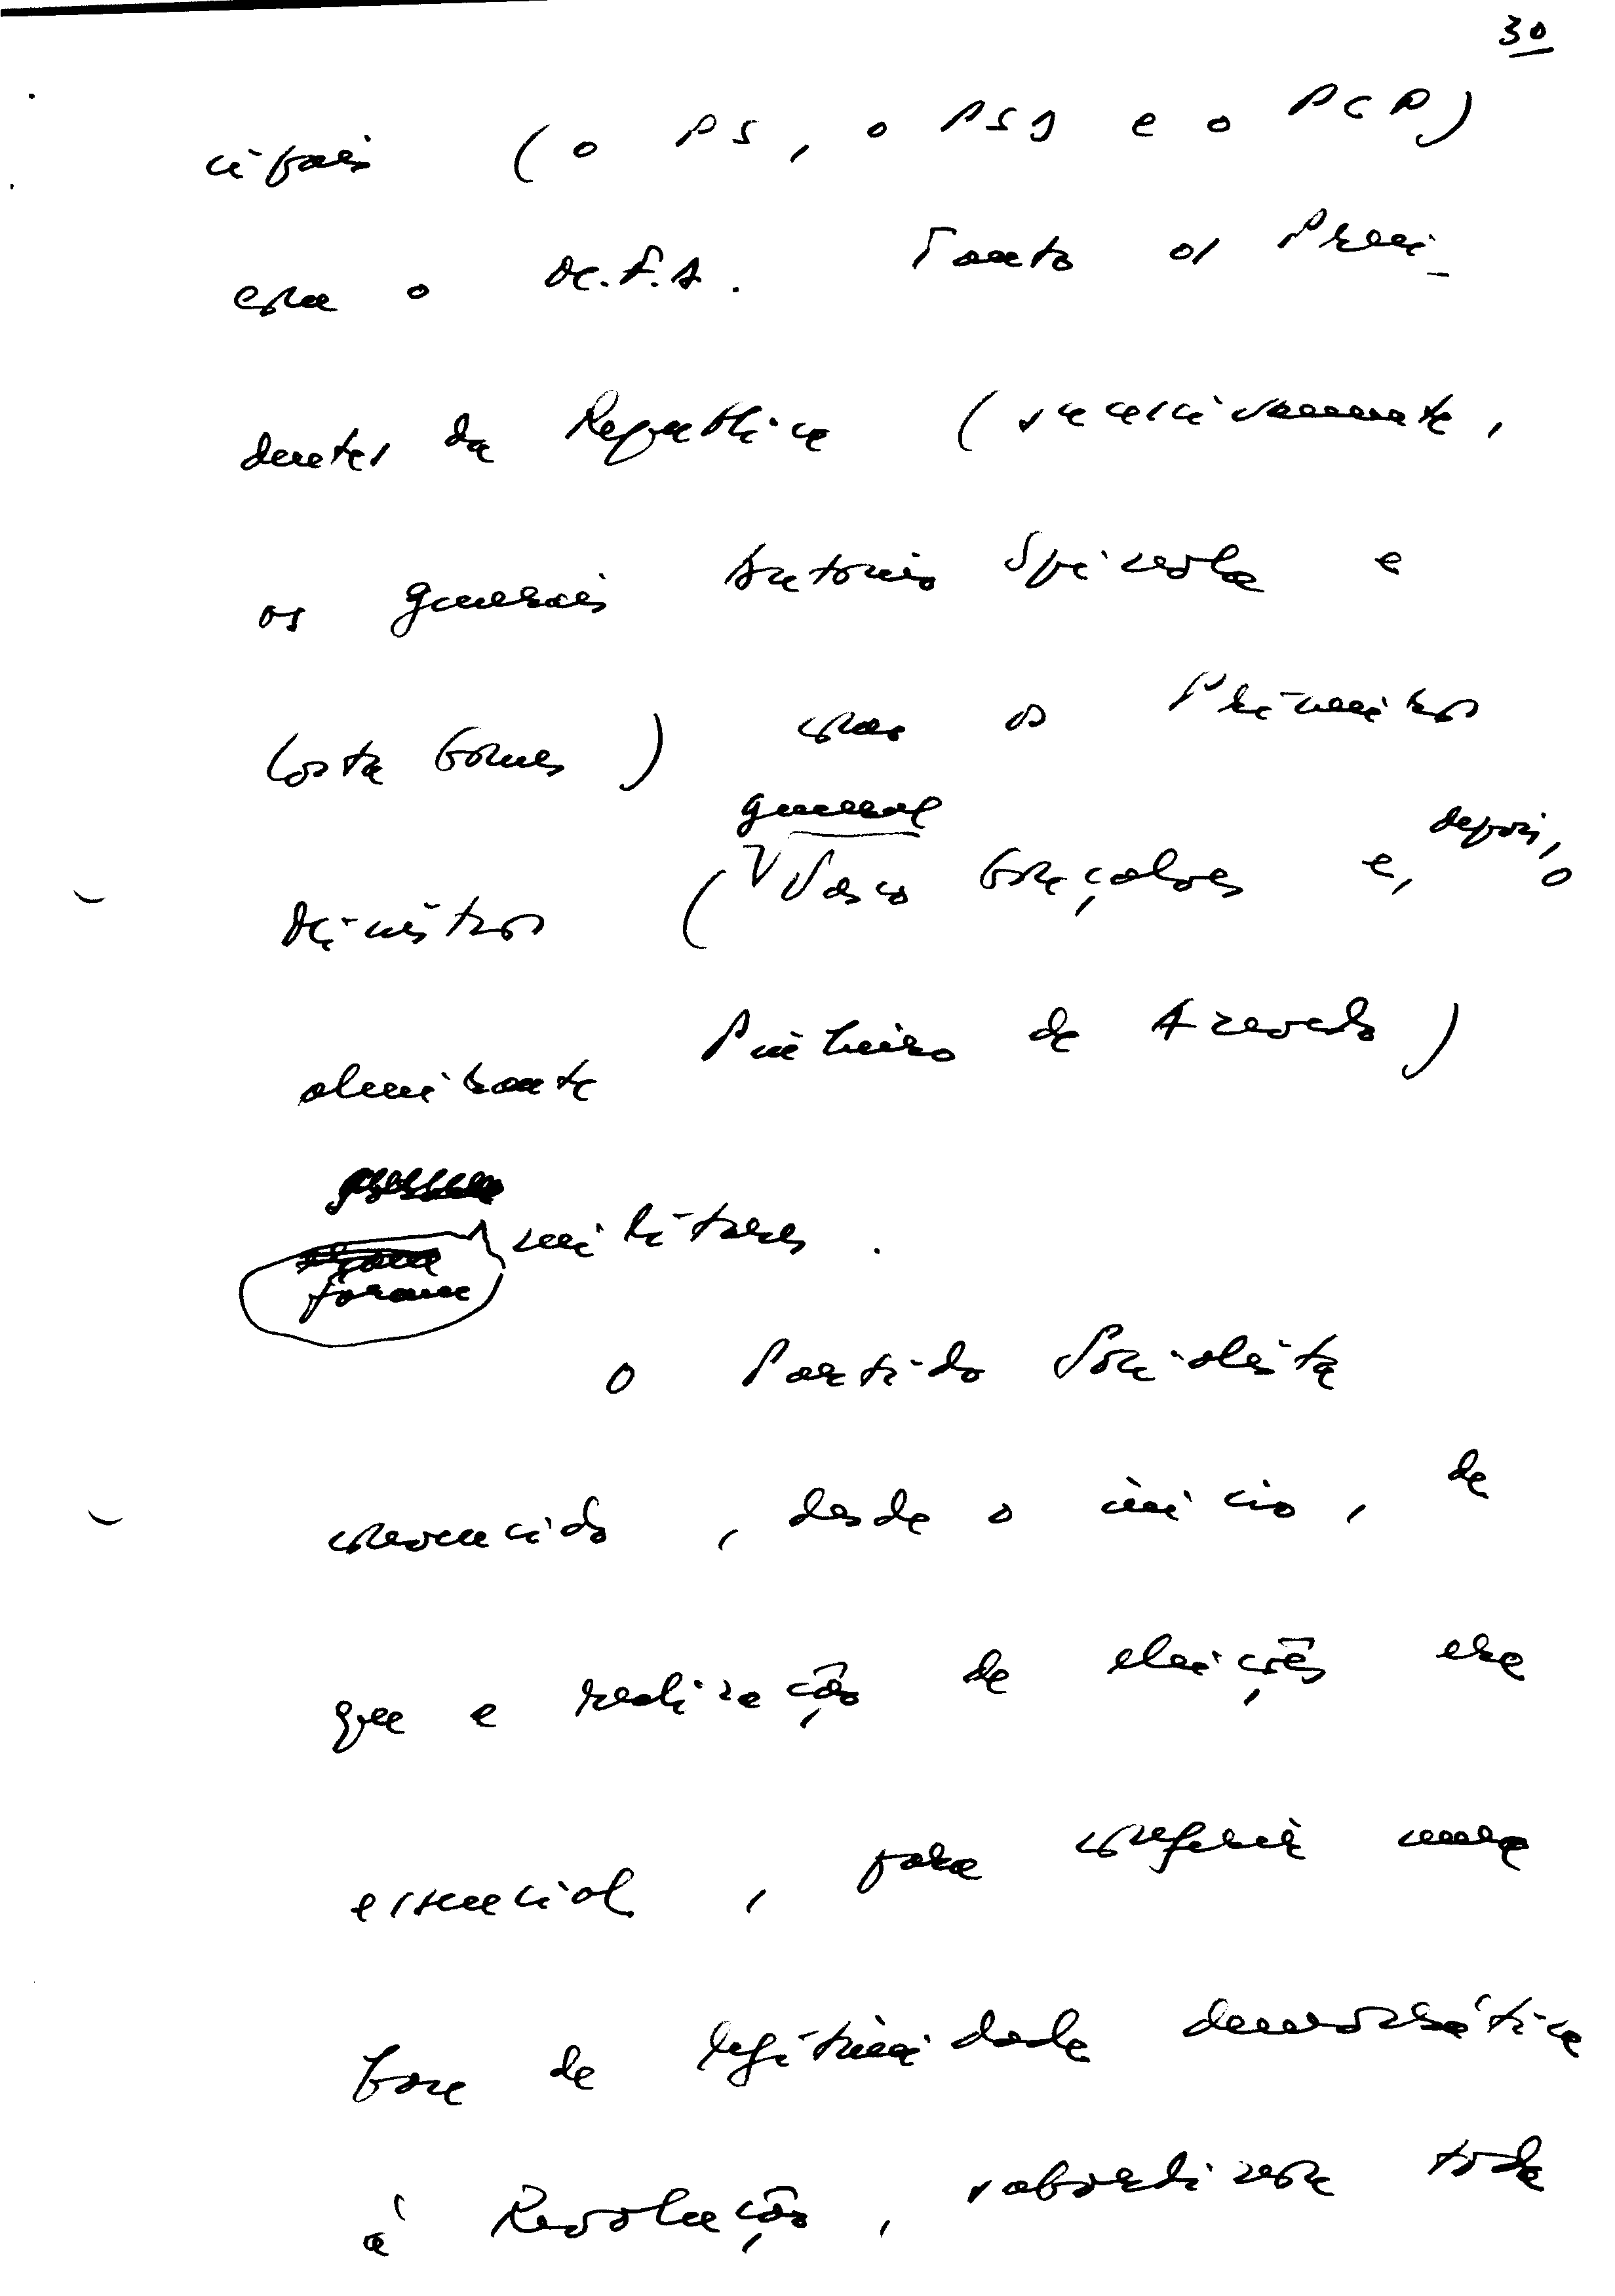 30
cipais (o PS, o PSD e o PCP)
com o M.F.A. Tanto os Presi-
dentes da República (sucessivamente,
os generais António Spínola e
Costa Gomes) como os Primeiros
general
depois, o
Ministros (Vasco Gonçalves e,
almirante Pinheiro de Azevedo)
militares.
foram
O Partido Socialista
convencido, desde o início, de
que a realização de eleições era
essencial, para conferir uma
base de legitimidade democrática
à Revolução, subordinou toda